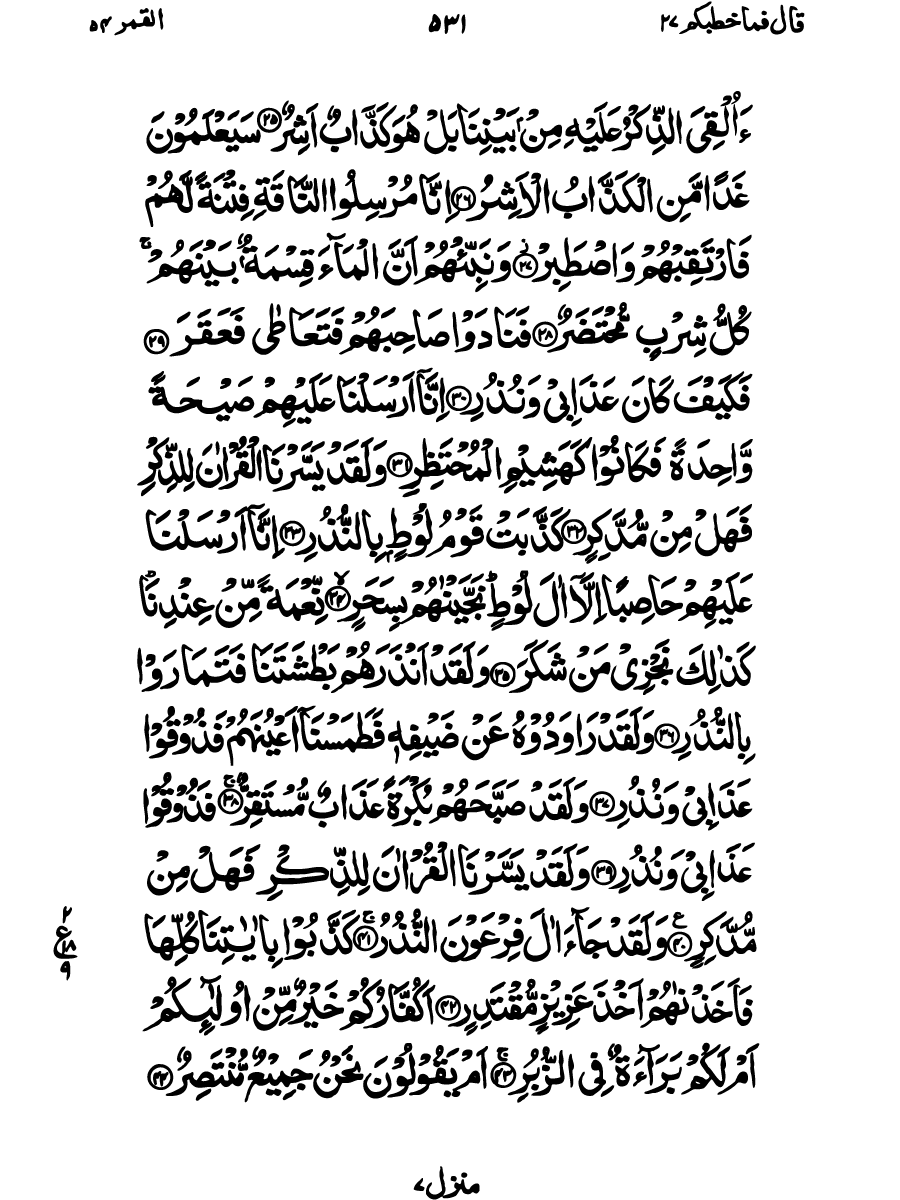 قال فما خطبكم ۲۷
۵۳۱
القمر ۵۴
ءَاُلْقِیَ الذِّكْرُ عَلَیْهِ مِنْۢ بَیْنِنَا بَلْ هُوَ كَذَّابٌ اَشِرٌ ۲۵ سَیَعْلَمُوْنَ
غَدًا مَّنِ الْكَذَّابُ الْاَشِرُ ۲۶ اِنَّا مُرْسِلُوا النَّاقَةِ فِتْنَةً لَّهُمْ
فَارْتَقِبْهُمْ وَاصْطَبِرْ ۲۷ وَنَبِّئْهُمْ اَنَّ الْمَآءَ قِسْمَةٌۢ بَیْنَهُمْ ۚ
كُلُّ شِرْبٍ مُّحْتَضَرٌ ۲۸ فَنَادَوْا صَاحِبَهُمْ فَتَعَاطٰی فَعَقَرَ ۲۹
فَكَیْفَ كَانَ عَذَابِیْ وَنُذُرِ ۳۰ اِنَّاۤ اَرْسَلْنَا عَلَیْهِمْ صَیْحَةً
وَّاحِدَةً فَكَانُوْا كَهَشِیْمِ الْمُحْتَظِرِ ۳۱ وَلَقَدْ یَسَّرْنَا الْقُرْاٰنَ لِلذِّكْرِ
فَهَلْ مِنْ مُّدَّكِرٍ ۳۲ كَذَّبَتْ قَوْمُ لُوْطٍۭ بِالنُّذُرِ ۳۳ اِنَّاۤ اَرْسَلْنَا
عَلَیْهِمْ حَاصِبًا اِلَّاۤ اٰلَ لُوْطٍ ؕ نَجَّیْنٰهُمْ بِسَحَرٍ ۙ۳۴ نِّعْمَةً مِّنْ عِنْدِنَا ؕ
كَذٰلِكَ نَجْزِیْ مَنْ شَكَرَ ۳۵ وَلَقَدْ اَنْذَرَهُمْ بَطْشَتَنَا فَتَمَارَوْا
بِالنُّذُرِ ۳۶ وَلَقَدْ رَاوَدُوْهُ عَنْ ضَیْفِهٖ فَطَمَسْنَاۤ اَعْیُنَهُمْ فَذُوْقُوْا
عَذَابِیْ وَنُذُرِ ۳۷ وَلَقَدْ صَبَّحَهُمْ بُكْرَةً عَذَابٌ مُّسْتَقِرٌّ ۚ۳۸ فَذُوْقُوْا
عَذَابِیْ وَنُذُرِ ۳۹ وَلَقَدْ یَسَّرْنَا الْقُرْاٰنَ لِلذِّكْرِ فَهَلْ مِنْ
مُّدَّكِرٍ ۠۴۰ وَلَقَدْ جَآءَ اٰلَ فِرْعَوْنَ النُّذُرُ ۚ۴۱ كَذَّبُوْا بِاٰیٰتِنَا كُلِّهَا
۲
ع
۱۸
۹
فَاَخَذْنٰهُمْ اَخْذَ عَزِیْزٍ مُّقْتَدِرٍ ۴۲ اَكُفَّارُكُمْ خَیْرٌ مِّنْ اُولٰٓىِٕكُمْ
اَمْ لَكُمْ بَرَآءَةٌ فِی الزُّبُرِ ۚ۴۳ اَمْ یَقُوْلُوْنَ نَحْنُ جَمِیْعٌ مُّنْتَصِرٌ ۴۴
منزل ۷